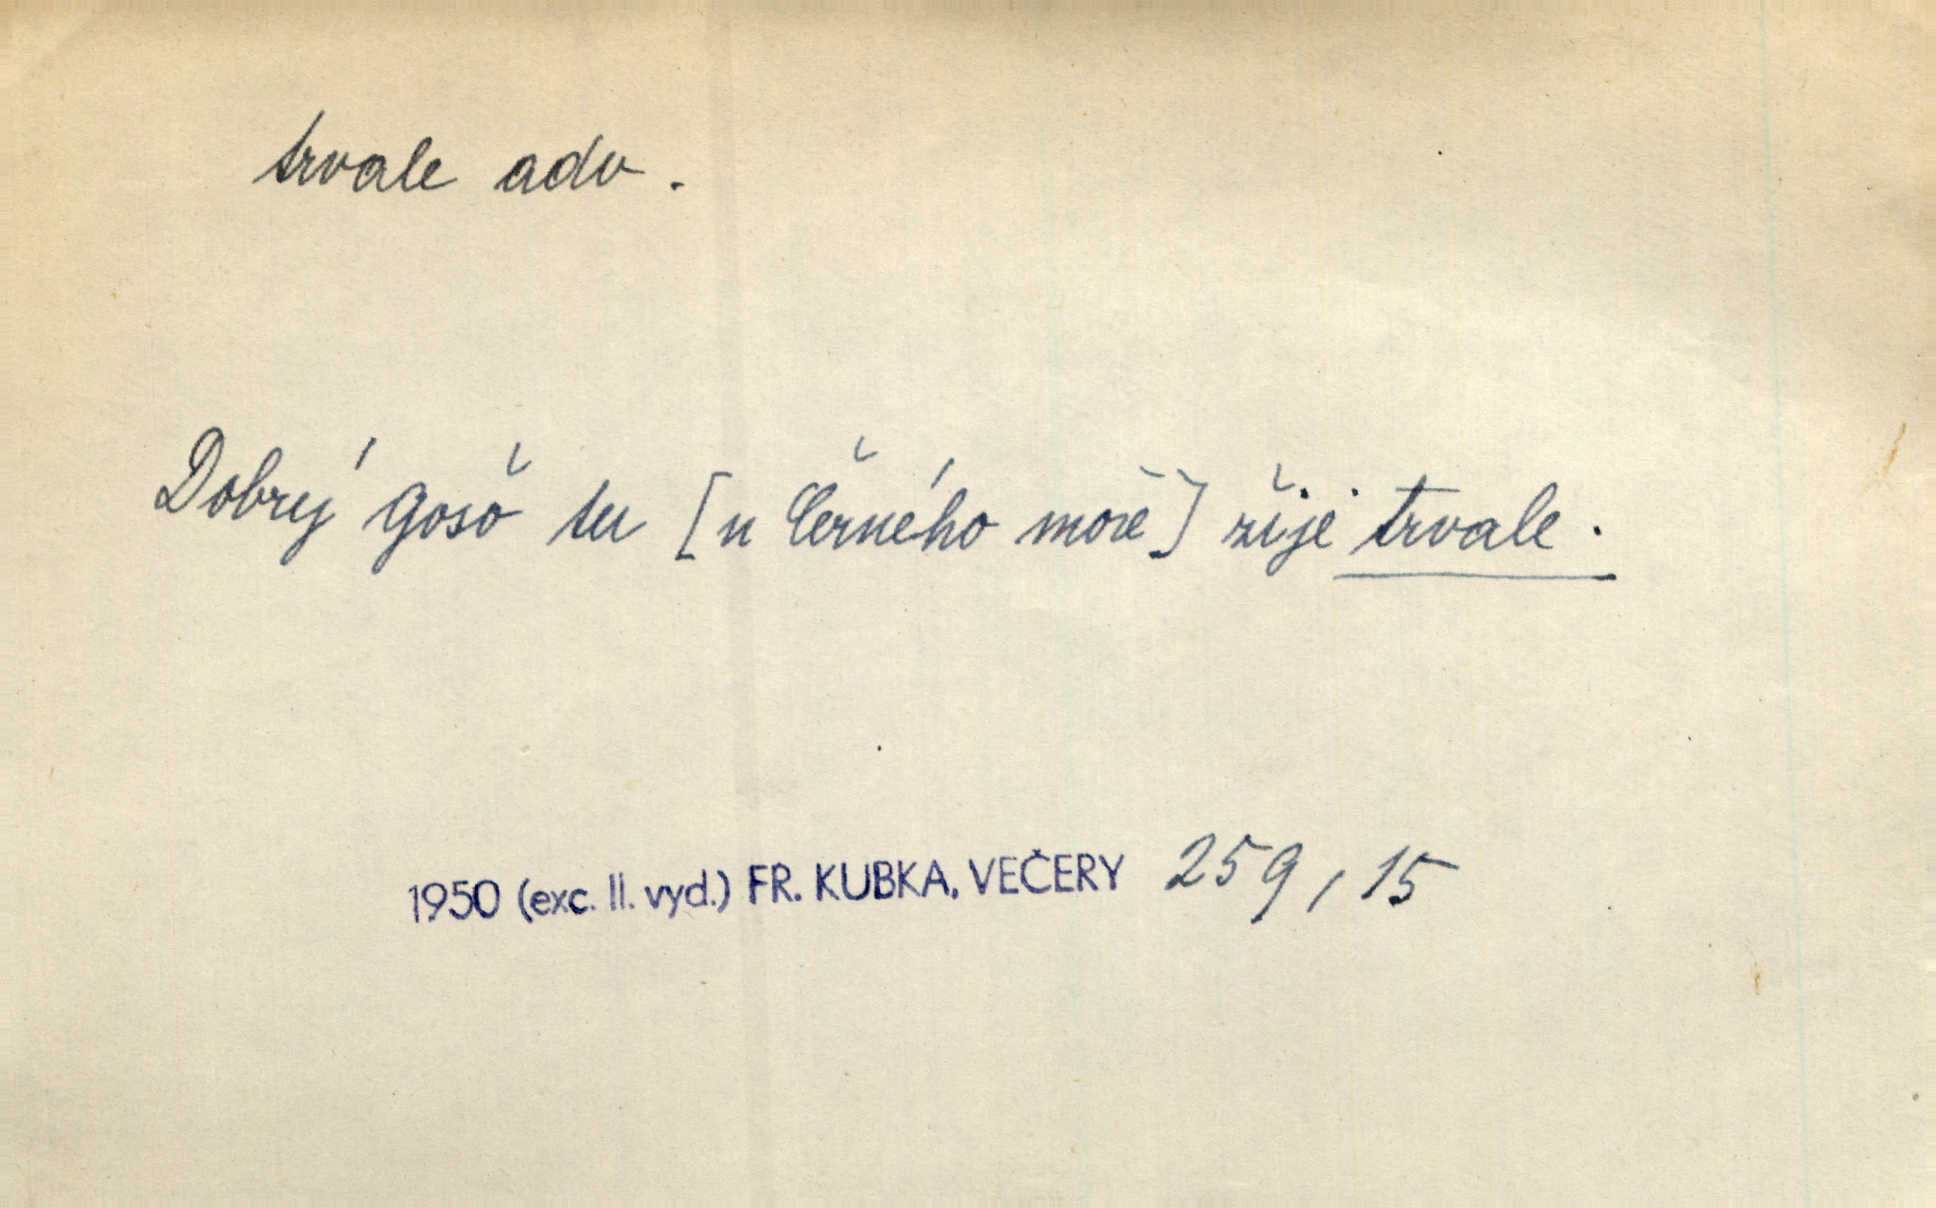 trvale adv.
Dobrý Gošo tu [u Černého moře] žije trvale.
1950 (exc. II. vyd.) FR. KUBKA, VEČERY 259, 15